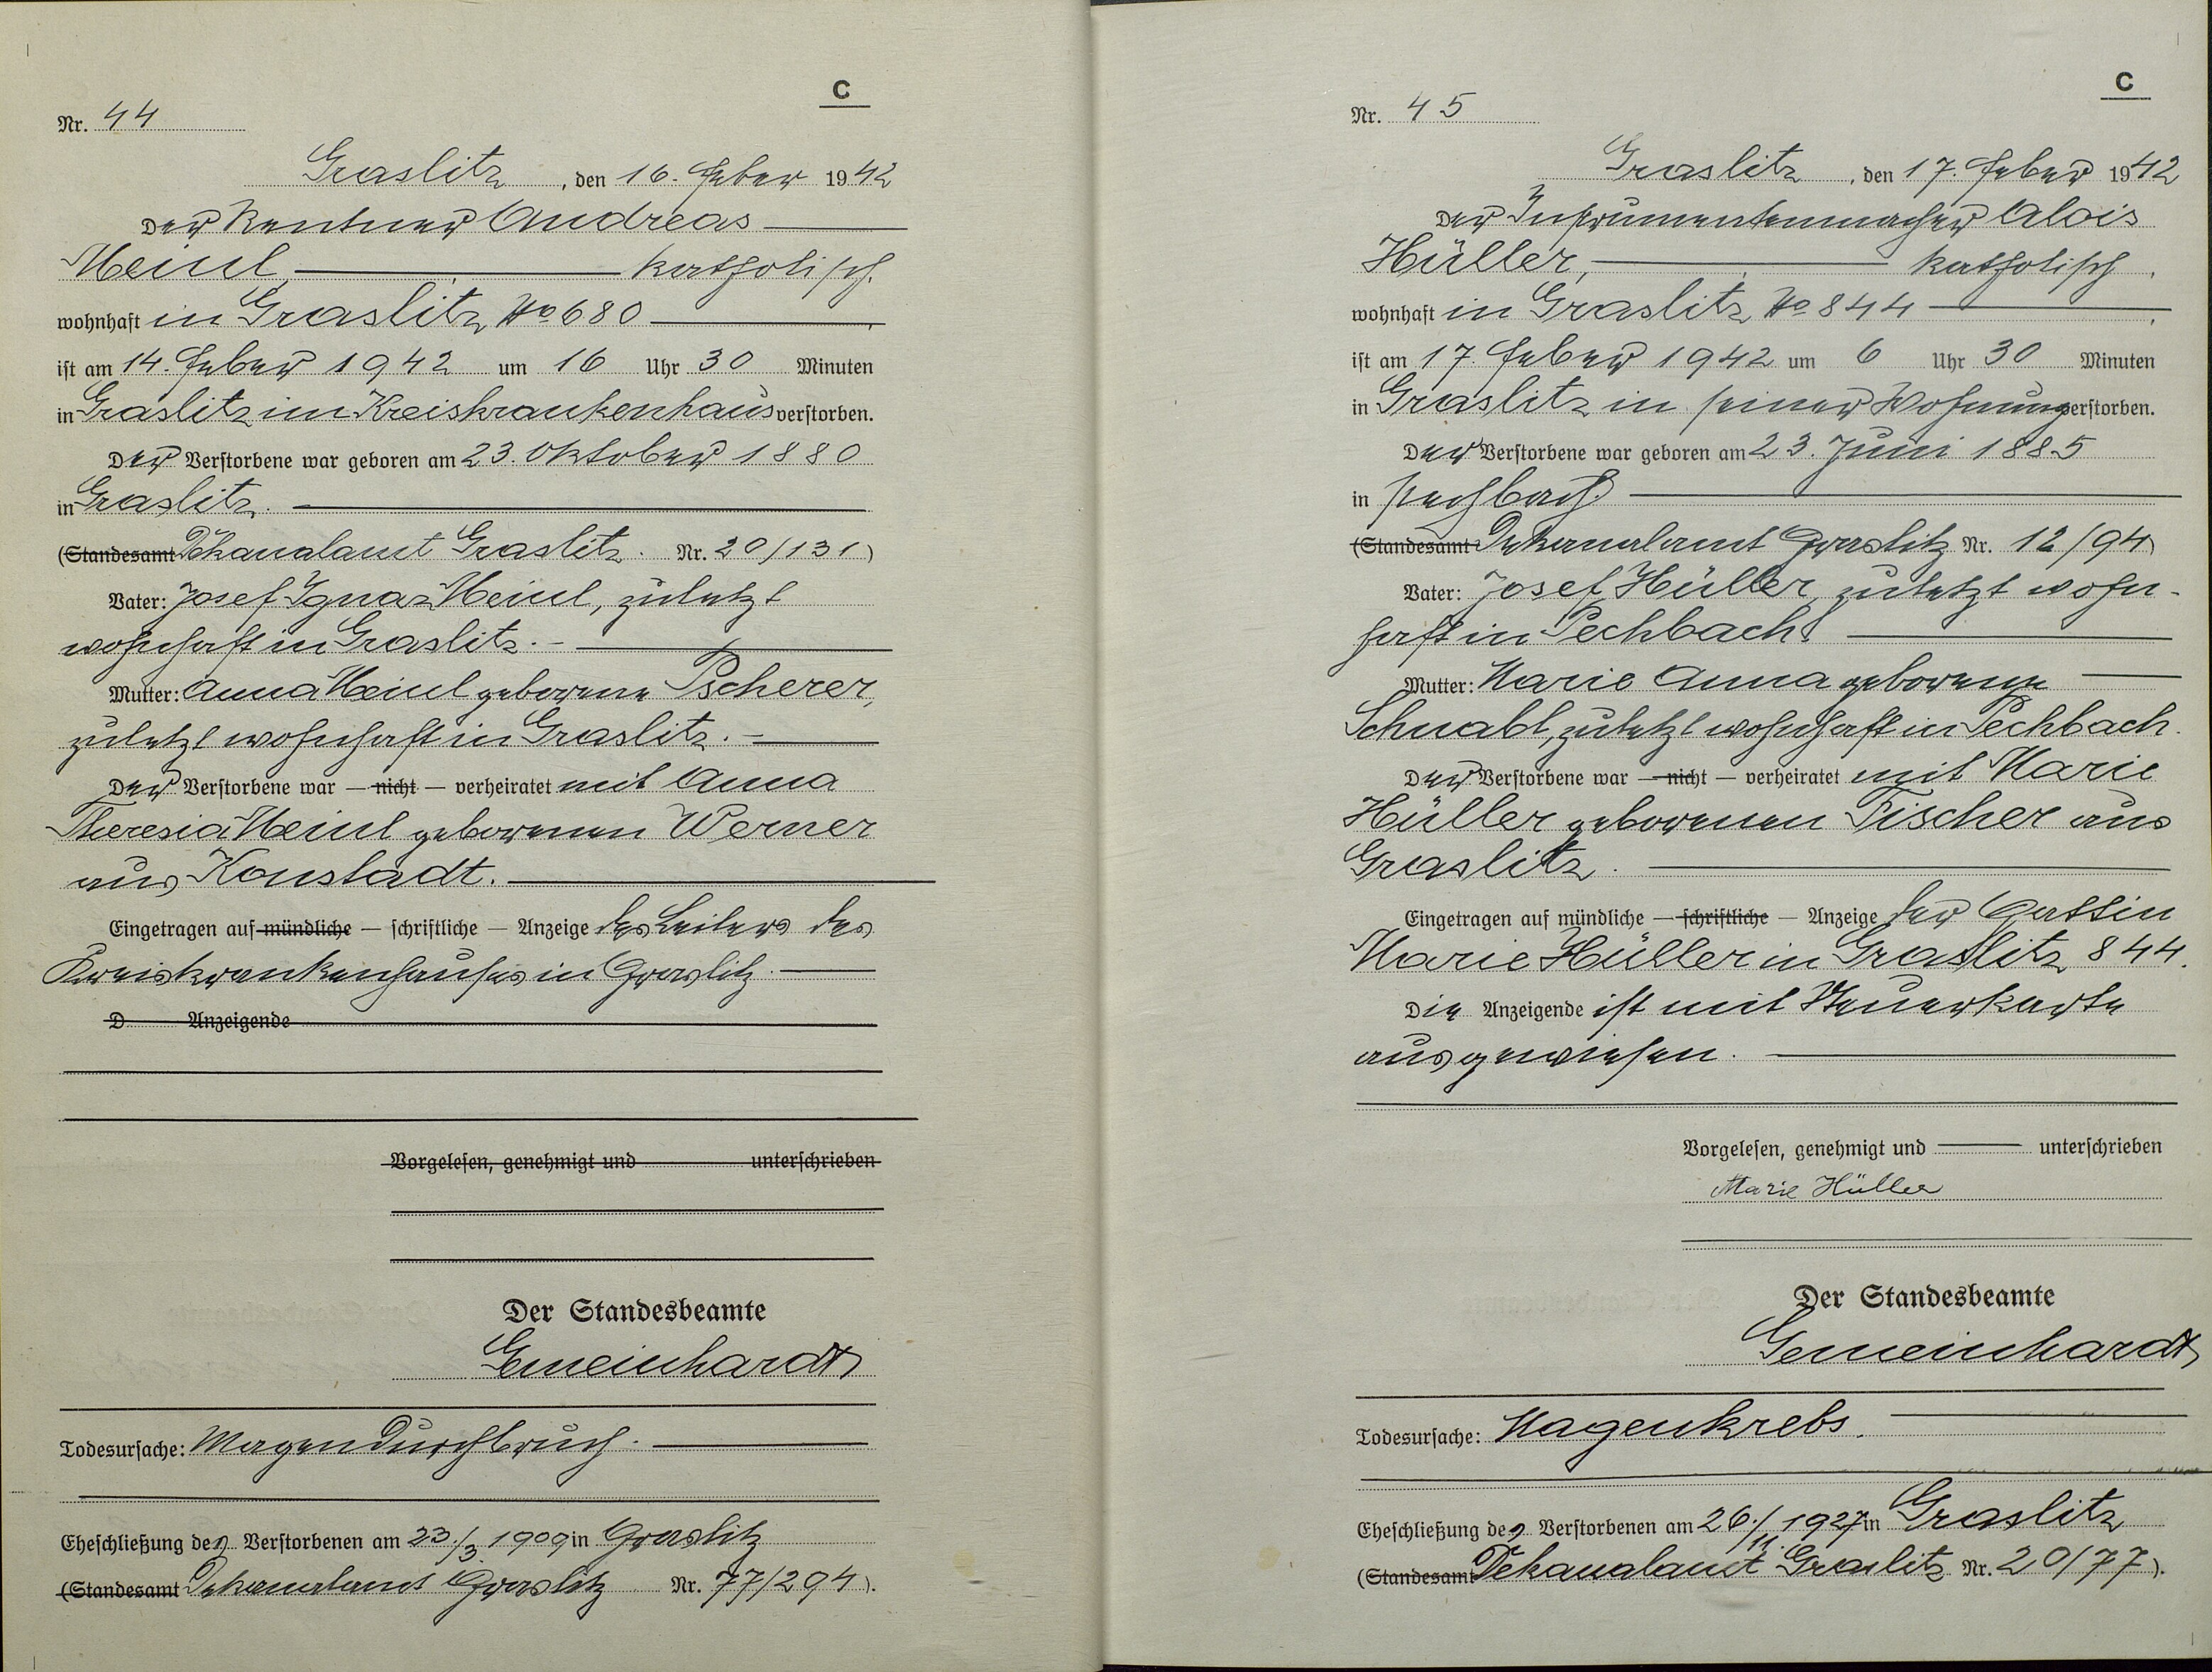 C
Nr. 44
Graslitz, den 16. Feber 1942
Der Rentner Andreas
Meinl, katholisch,
wohnhaft in Graslitz No 680,
ist am 14. Feber 1942 um 16 Uhr 30 Minuten
in Graslitz im Kreiskrankenhaus verstorben.
Der Verstorbene war geboren am 23. Oktober 1880
in Graslitz.
(Standesamt Dekanalamt Graslitz. Nr. 20/131)
Vater: Josef Ignaz Meinl, zuletzt
wohnhaft in Graslitz.
Mutter: Anna Meinl geborene Pscherer,
zuletzt wohnhaft in Graslitz.
Der Verstorbene war — nicht — verheiratet mit Anna
Theresia Meinl geborenen Werner
aus Konstadt.
Eingetragen auf mündliche — schriftliche — Anzeige des Leiters des
Kreiskrankenhauses in Graslitz.
D Anzeigende
Vorgelesen, genehmigt und unterschrieben
Der Standesbeamte
Gemeinhardt
Todesursache: Magendurchbruch.
Eheschließung des Verstorbenen am 23./3. 1909 in Graslitz
(Standesamt Dekanalamt Graslitz Nr. 77/294).
C
Nr. 45
Graslitz, den 17. Feber 1942
Der Instrumentenmacher Alois
Hüller, katholisch,
wohnhaft in Graslitz No 844,
ist am 17. Feber 1942 um 6 Uhr 30 Minuten
in Graslitz in seiner Wohnung verstorben.
Der Verstorbene war geboren am 23. Juni 1885
in Pechbach
(Standesamt Dekanalamt Graslitz Nr. 12/94)
Vater: Josef Hüller, zuletzt wohn-
haft in Pechbach
Mutter: Marie Anna geborene
Schnabl, zuletzt wohnhaft in Pechbach.
Der Verstorbene war — nicht — verheiratet mit Marie
Hüller geborenen Fischer aus
Graslitz.
Eingetragen auf mündliche — schriftliche — Anzeige der Gattin
Marie Hüller in Graslitz 844.
Die Anzeigende ist mit Steuerkarte
ausgewiesen.
Vorgelesen, genehmigt und unterschrieben
Marie Hüller
Der Standesbeamte
Gemeinhardt
Todesursache: Magenkrebs.
Eheschließung des Verstorbenen am 26./11. 1927 in Graslitz
(Standesamt Dekanalamt Graslitz Nr. 20/77).